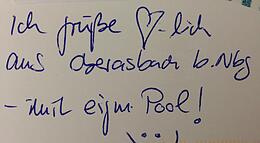 Ich grüße ♡-lich
aus Oberasbach b. Nbg
- mit eigm. Pool!